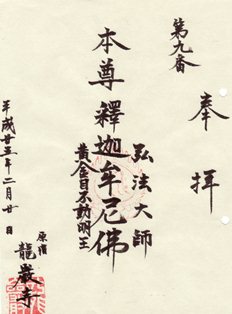 奉拝
第九番
弘法大師
本尊釋迦牟尼佛
黄金目不動明王
平成廿五年二月廿日
原宿
龍巌寺